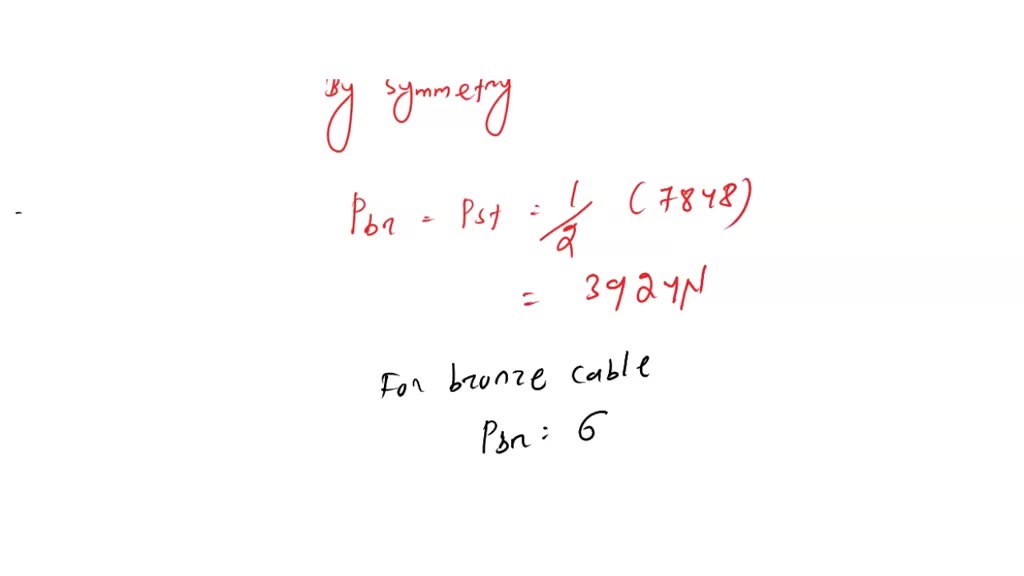 By symmetry
Pbr = Pst = 1/2 (7848)
= 3924N
For bronze cable
Pbr = 6